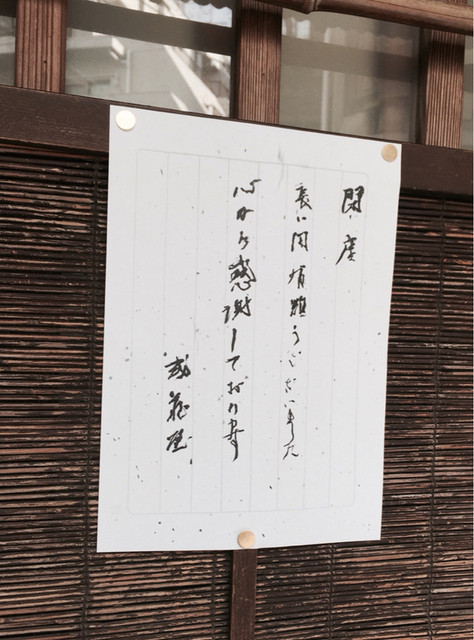 閉店
長い間有難うございました
心から感謝しております
武蔵屋